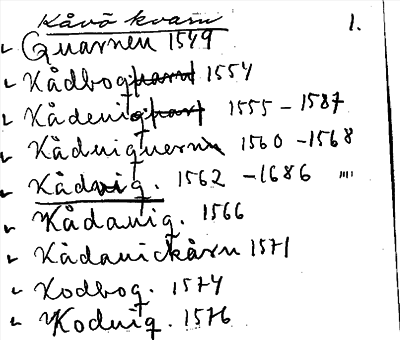 Kåvö kvarn 1.
Quarnen 1549
Kådbog 1554
Kådeuig 1555 - 1587
Kåduiguern 1560 - 1568
Kådvig. 1562 - 1686 ""
Kådauig. 1566
Kådauickårn 1571
Kodbog. 1574
Koduig. 1576